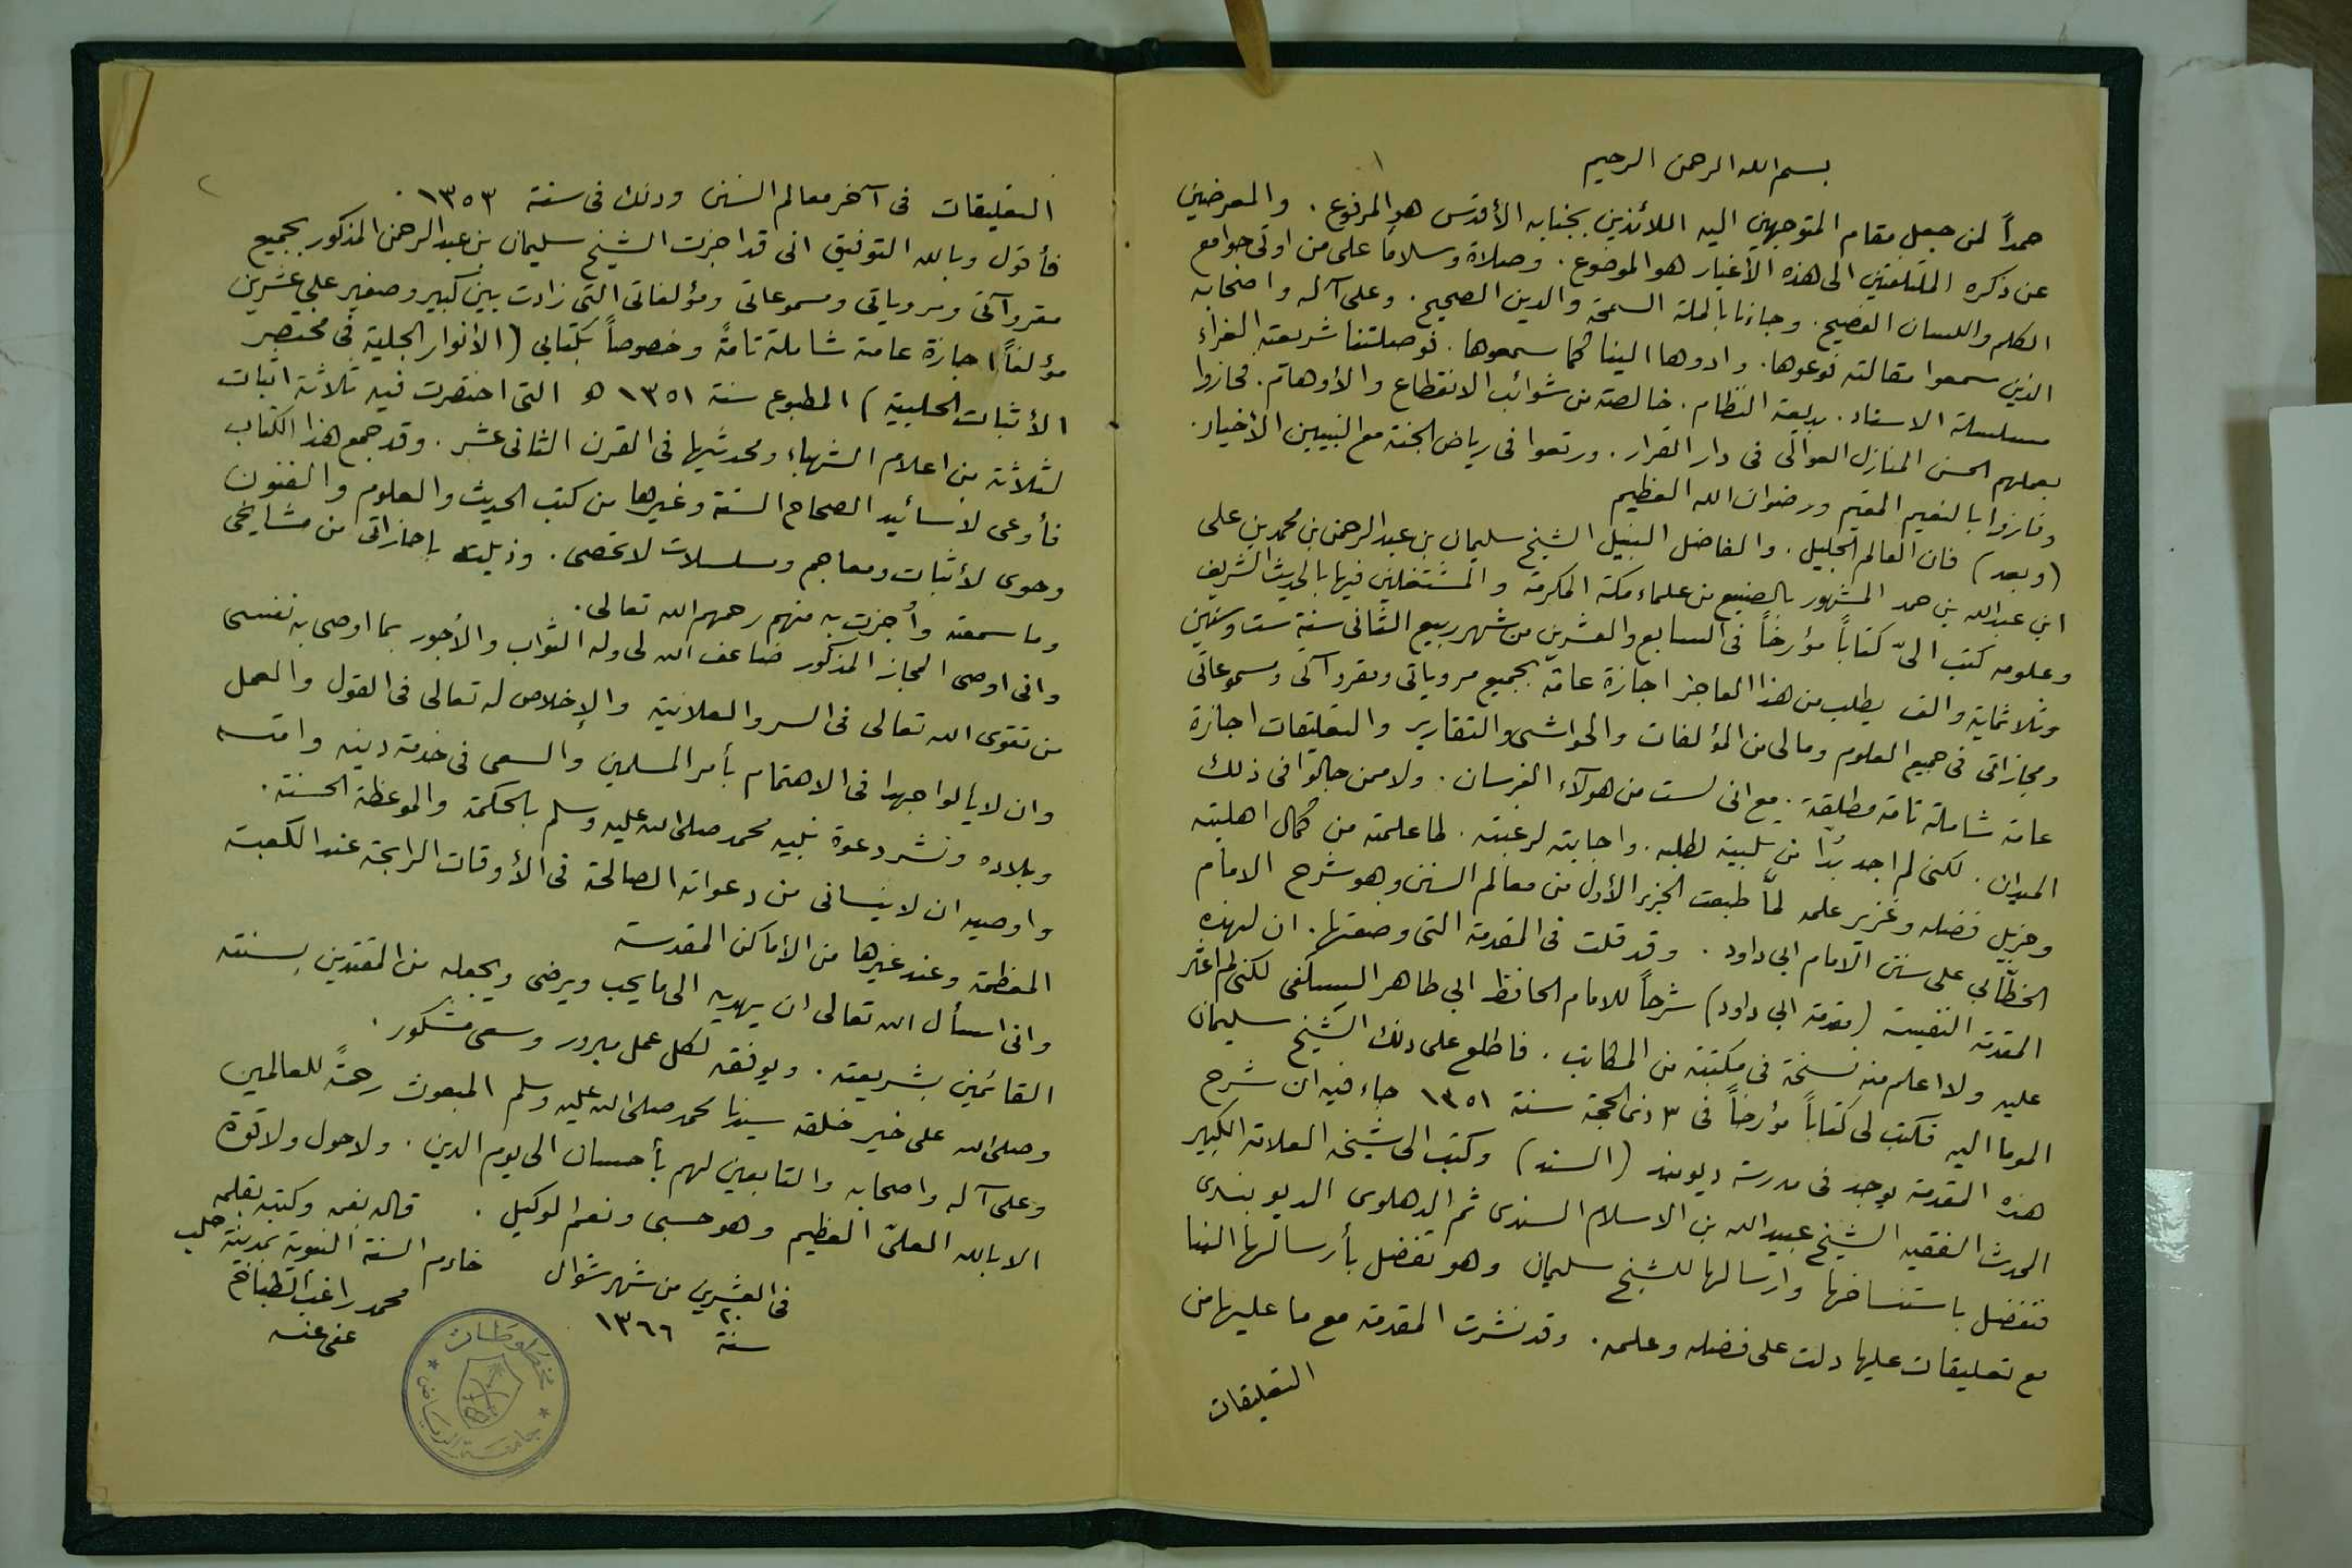 ١
بسم الله الرحمن الرحيم
حمداً لمن جعل مقام المتوجهين اليه اللائذين بجنابه الأقدس هو المرفوع . والمعرضين
عن ذكره الملتفتين الى هذه الأغيار هو الموضوع . وصلاة وسلاما على من اوتى جوامع
الكلم واللسان الفصيح . وجاءنا بالملة السمحة والدين الصحيح . وعلى آله واصحابه
الذين سمعوا مقالته فوعوها . وادوها الينا كما سمعوها . فوصلتنا شريعته الغراء
مسلسلة الاسناد . بديعة النظام . خالصة من شوائب الانقطاع والأوهام . فحازوا
بعملهم الحسن المنازل العوالى فى دار القرار . ورتعوا فى رياض الجنة مع النبيين الأخيار .
وفازوا بالنعيم المقيم ورضوان الله العظيم
(وبعد) فان العالم الجليل . والفاضل النبيل الشيخ سليمان بن عبدالرحمن بن محمد بن على
ابن عبدالله بن حمد المشهور بالصنيع من علماء مكة المكرمة والمشتغلين فيها بالحديث الشريف
وعلومه كتب الىّ كتاباً مؤرخاً فى السابع والعشرين من شهر ربيع الثانى سنة ست وستين
وثلاثمايه والف يطلب من هذا العاجز اجازة عامة بجميع مروياتى ومقروآتى ومسموعاتى
ومجازاتى فى جميع العلوم ومالى من المؤلفات والحواشى والتقارير والتعليقات اجازة
عامة شاملة تامة مطلقة . مع انى لست من هولآء الفرسان . ولا ممن جالوا فى ذلك
الميدان . لكنى لم اجد بُدّا من تلبية لطلبه . واجابته لرغبته . لما علمته من كمال اهليته
وجزيل فضله وغزير علمه لمّا طبعت الجزء الأول من معالم السنن وهو شرح الامام
الخطّابي على سنن الامام ابي داود . وقد قلت فى المقدمة التى وضعتها . ان لهذه
المقدمة النفيسة (مقدمة ابي داود) شرحاً للامام الحافظ ابي طاهر السلفى لكنى لم اعثر
عليه ولا اعلم منه نسخة فى مكتبة من المكاتب . فاطلع على ذلك الشيخ سليمان
الموما اليه فكتب لى كتاباً مؤرخاً فى ٣ ذى الحجة سنة ١٣٥١ جاء فيه ان شرح
هذه المقدمة يوجد فى مدرسة ديوبند (السند) وكتب الى شيخه العلامة الكبير
المحدث الفقيه الشيخ عبيدالله بن الاسلام السندى ثم الدهلوى الديوبندى
فتفضل باستنساخها وارسالها للشيخ سليمان وهو تفضل بأرسالها الينا
مع تعليقات عليها دلت على فضله وعلمه . وقد نشرت المقدمة مع ما عليها من
التعليقات
٢
التعليقات فى آخر معالم السنن وذلك فى سنة ١٣٥٣ .
فأقول وبالله التوفيق انى قد اجزت الشيخ سليمان بن عبدالرحمن المذكور بجميع
مقروآتى ومروياتى ومسموعاتى ومؤلفاتى التى زادت بين كبير وصغير على عشرين
مؤلفاً اجازة عامة شاملة تامةً وخصوصاً بكتابي (الأنوار الجلية فى مختصر
الأثبات الحلبية) المطبوع سنة ١٣٥١ هـ التى اختصرت فيه ثلاثة اثبات
لثلاثة من اعلام الشهباء ومحدثيها فى القرن الثانى عشر . وقد جمع هذا الكتاب
فأوعى لأسانيد الصحاح الستة وغيرها من كتب الحديث والعلوم والفنون
وحوى لأثبات ومعاجم ومسلسلات لا تحصى . وذيلته باجازاتى من مشايخى
وما سمعته وأُجزت به منهم رحمهم الله تعالى .
وانى اوصى المجاز المذكور ضاعف الله لى وله الثواب والأجور بما اوصى به نفسى
من تقوى الله تعالى فى السر والعلانية والإخلاص له تعالى فى القول والعمل
وان لا يألوا جهدا فى الاهتمام بأمر المسلمين والسعى فى خدمة دينه وامته
وبلاده ونشر دعوة نبيه محمد صلى الله عليه وسلم بالحكمة والموعظة الحسنة .
واوصيه ان لا ينسانى من دعواته الصالحة فى الأوقات الرابحة عند الكعبة
المعظمة وعند غيرها من الأماكن المقدسة
وانى اسأل الله تعالى ان يهديه الى ما يحب ويرضى ويجعله من المقتدين بسنته
القائمين بشريعته . ويوفقه لكل عمل مبرور وسعى مشكور .
وصلى الله على خير خلقه سيدنا محمد صلى الله عليه وسلم المبعوث رحمةً للعالمين
وعلى آله واصحابه والتابعين لهم بأحسان الى يوم الدين . ولا حول ولا قوة
الا بالله العلىّ العظيم وهو حسبى ونعم الوكيل . قاله بفمه وكتبه بقلمه
خادم السنة النبوية بمدينة حلب
محمد راغب الطباخ
عفى عنه
فى العشرين من شهر شوال
٢٠
سنة ١٣٦٦
مخطوطات
جامعة الرياض